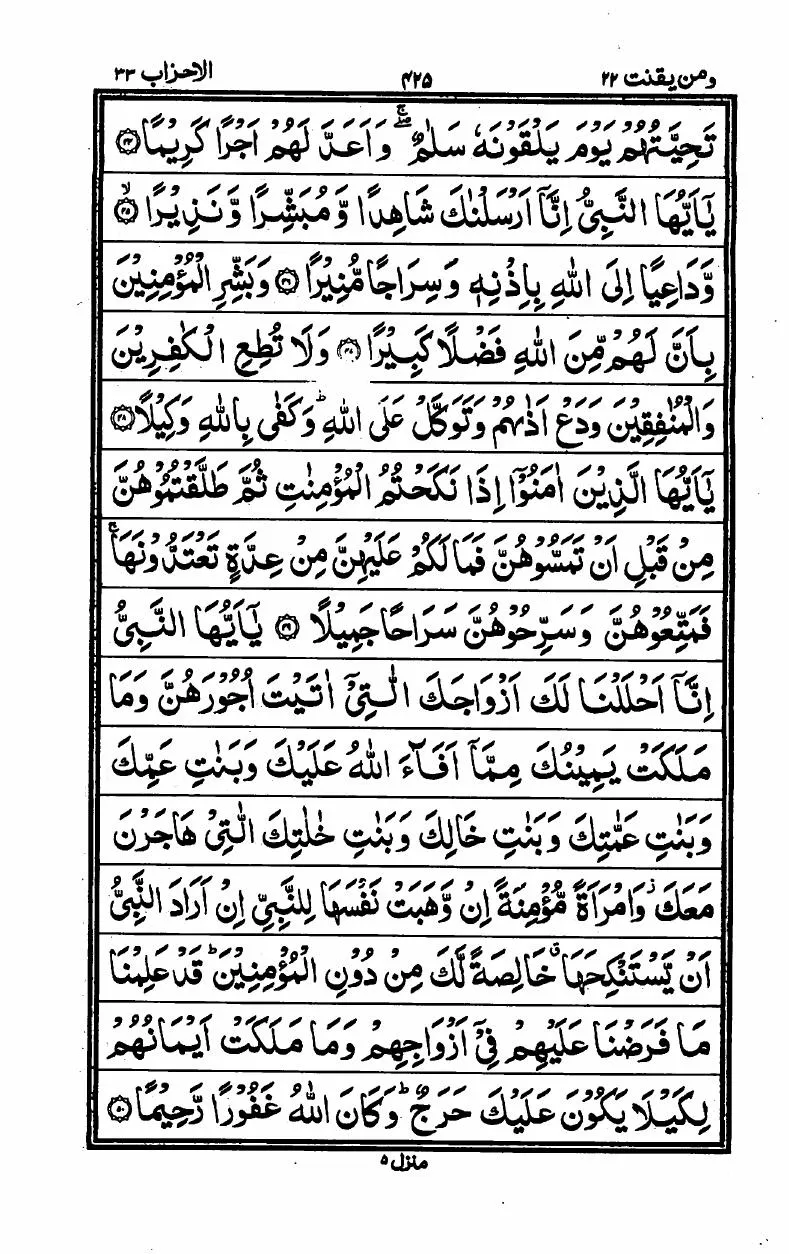 ومن يقنت ٢٢ ۴۲۵ الاحزاب ٣٣
تَحِيَّتُهُمْ يَوْمَ يَلْقَوْنَهٗ سَلٰمٌ ۖۚ وَاَعَدَّ لَهُمْ اَجْرًا كَرِيْمًا ۝۴۴
يٰۤاَيُّهَا النَّبِيُّ اِنَّاۤ اَرْسَلْنٰكَ شَاهِدًا وَّمُبَشِّرًا وَّنَذِيْرًا ۝۴۵ۙ
وَّدَاعِيًا اِلَى اللّٰهِ بِاِذْنِهٖ وَسِرَاجًا مُّنِيْرًا ۝۴۶ وَبَشِّرِ الْمُؤْمِنِيْنَ
بِاَنَّ لَهُمْ مِّنَ اللّٰهِ فَضْلًا كَبِيْرًا ۝۴۷ وَلَا تُطِعِ الْكٰفِرِيْنَ
وَالْمُنٰفِقِيْنَ وَدَعْ اَذٰىهُمْ وَتَوَكَّلْ عَلَى اللّٰهِ ؕ وَكَفٰى بِاللّٰهِ وَكِيْلًا ۝۴۸
يٰۤاَيُّهَا الَّذِيْنَ اٰمَنُوْۤا اِذَا نَكَحْتُمُ الْمُؤْمِنٰتِ ثُمَّ طَلَّقْتُمُوْهُنَّ
مِنْ قَبْلِ اَنْ تَمَسُّوْهُنَّ فَمَا لَكُمْ عَلَيْهِنَّ مِنْ عِدَّةٍ تَعْتَدُّوْنَهَا ۚ
فَمَتِّعُوْهُنَّ وَسَرِّحُوْهُنَّ سَرَاحًا جَمِيْلًا ۝۴۹ يٰۤاَيُّهَا النَّبِيُّ
اِنَّاۤ اَحْلَلْنَا لَكَ اَزْوَاجَكَ الّٰتِيْۤ اٰتَيْتَ اُجُوْرَهُنَّ وَمَا
مَلَكَتْ يَمِيْنُكَ مِمَّاۤ اَفَآءَ اللّٰهُ عَلَيْكَ وَبَنٰتِ عَمِّكَ
وَبَنٰتِ عَمّٰتِكَ وَبَنٰتِ خَالِكَ وَبَنٰتِ خٰلٰتِكَ الّٰتِيْ هَاجَرْنَ
مَعَكَ ؗ وَامْرَاَةً مُّؤْمِنَةً اِنْ وَّهَبَتْ نَفْسَهَا لِلنَّبِيِّ اِنْ اَرَادَ النَّبِيُّ
اَنْ يَّسْتَنْكِحَهَا ۗ خَالِصَةً لَّكَ مِنْ دُوْنِ الْمُؤْمِنِيْنَ ؕ قَدْ عَلِمْنَا
مَا فَرَضْنَا عَلَيْهِمْ فِيْۤ اَزْوَاجِهِمْ وَمَا مَلَكَتْ اَيْمَانُهُمْ
لِكَيْلَا يَكُوْنَ عَلَيْكَ حَرَجٌ ؕ وَكَانَ اللّٰهُ غَفُوْرًا رَّحِيْمًا ۝۵۰
منزل ۵